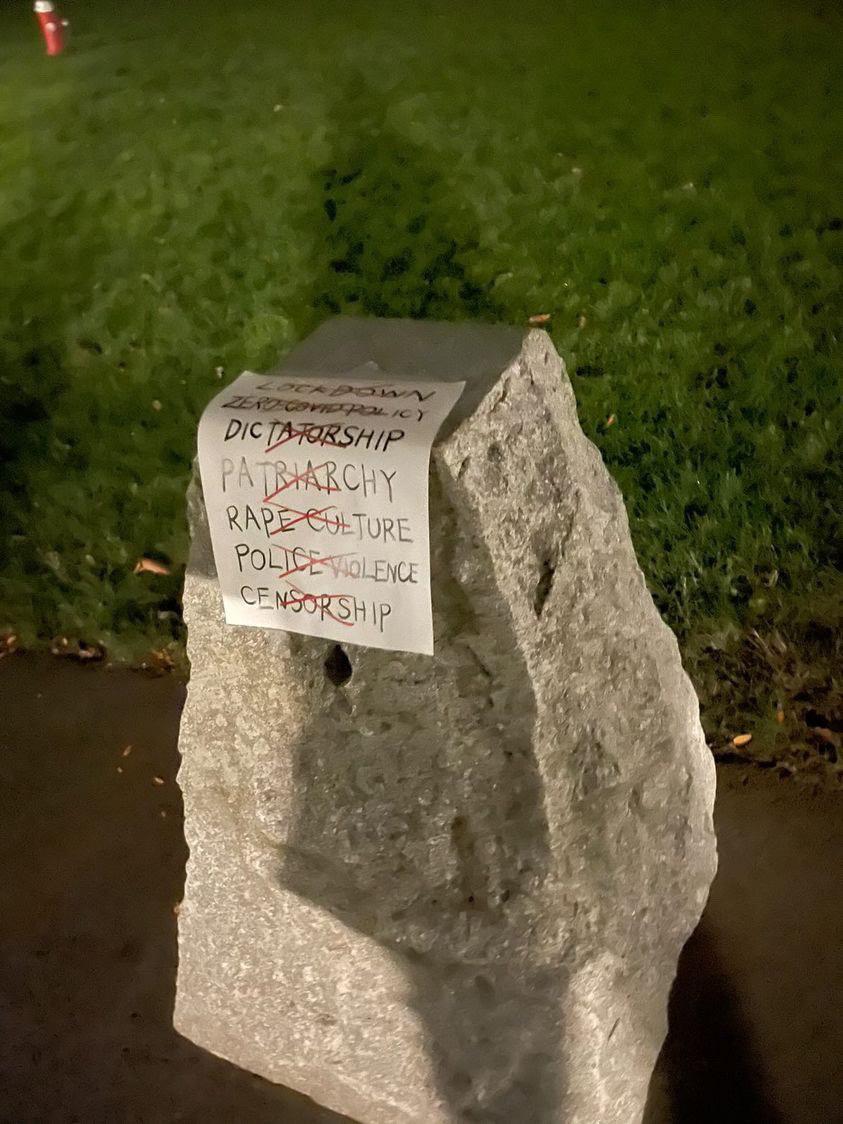 LOCKDOWN
ZERO COVID POLICY
DICTATORSHIP
PATRIARCHY
RAPE CULTURE
POLICE VIOLENCE
CENSORSHIP